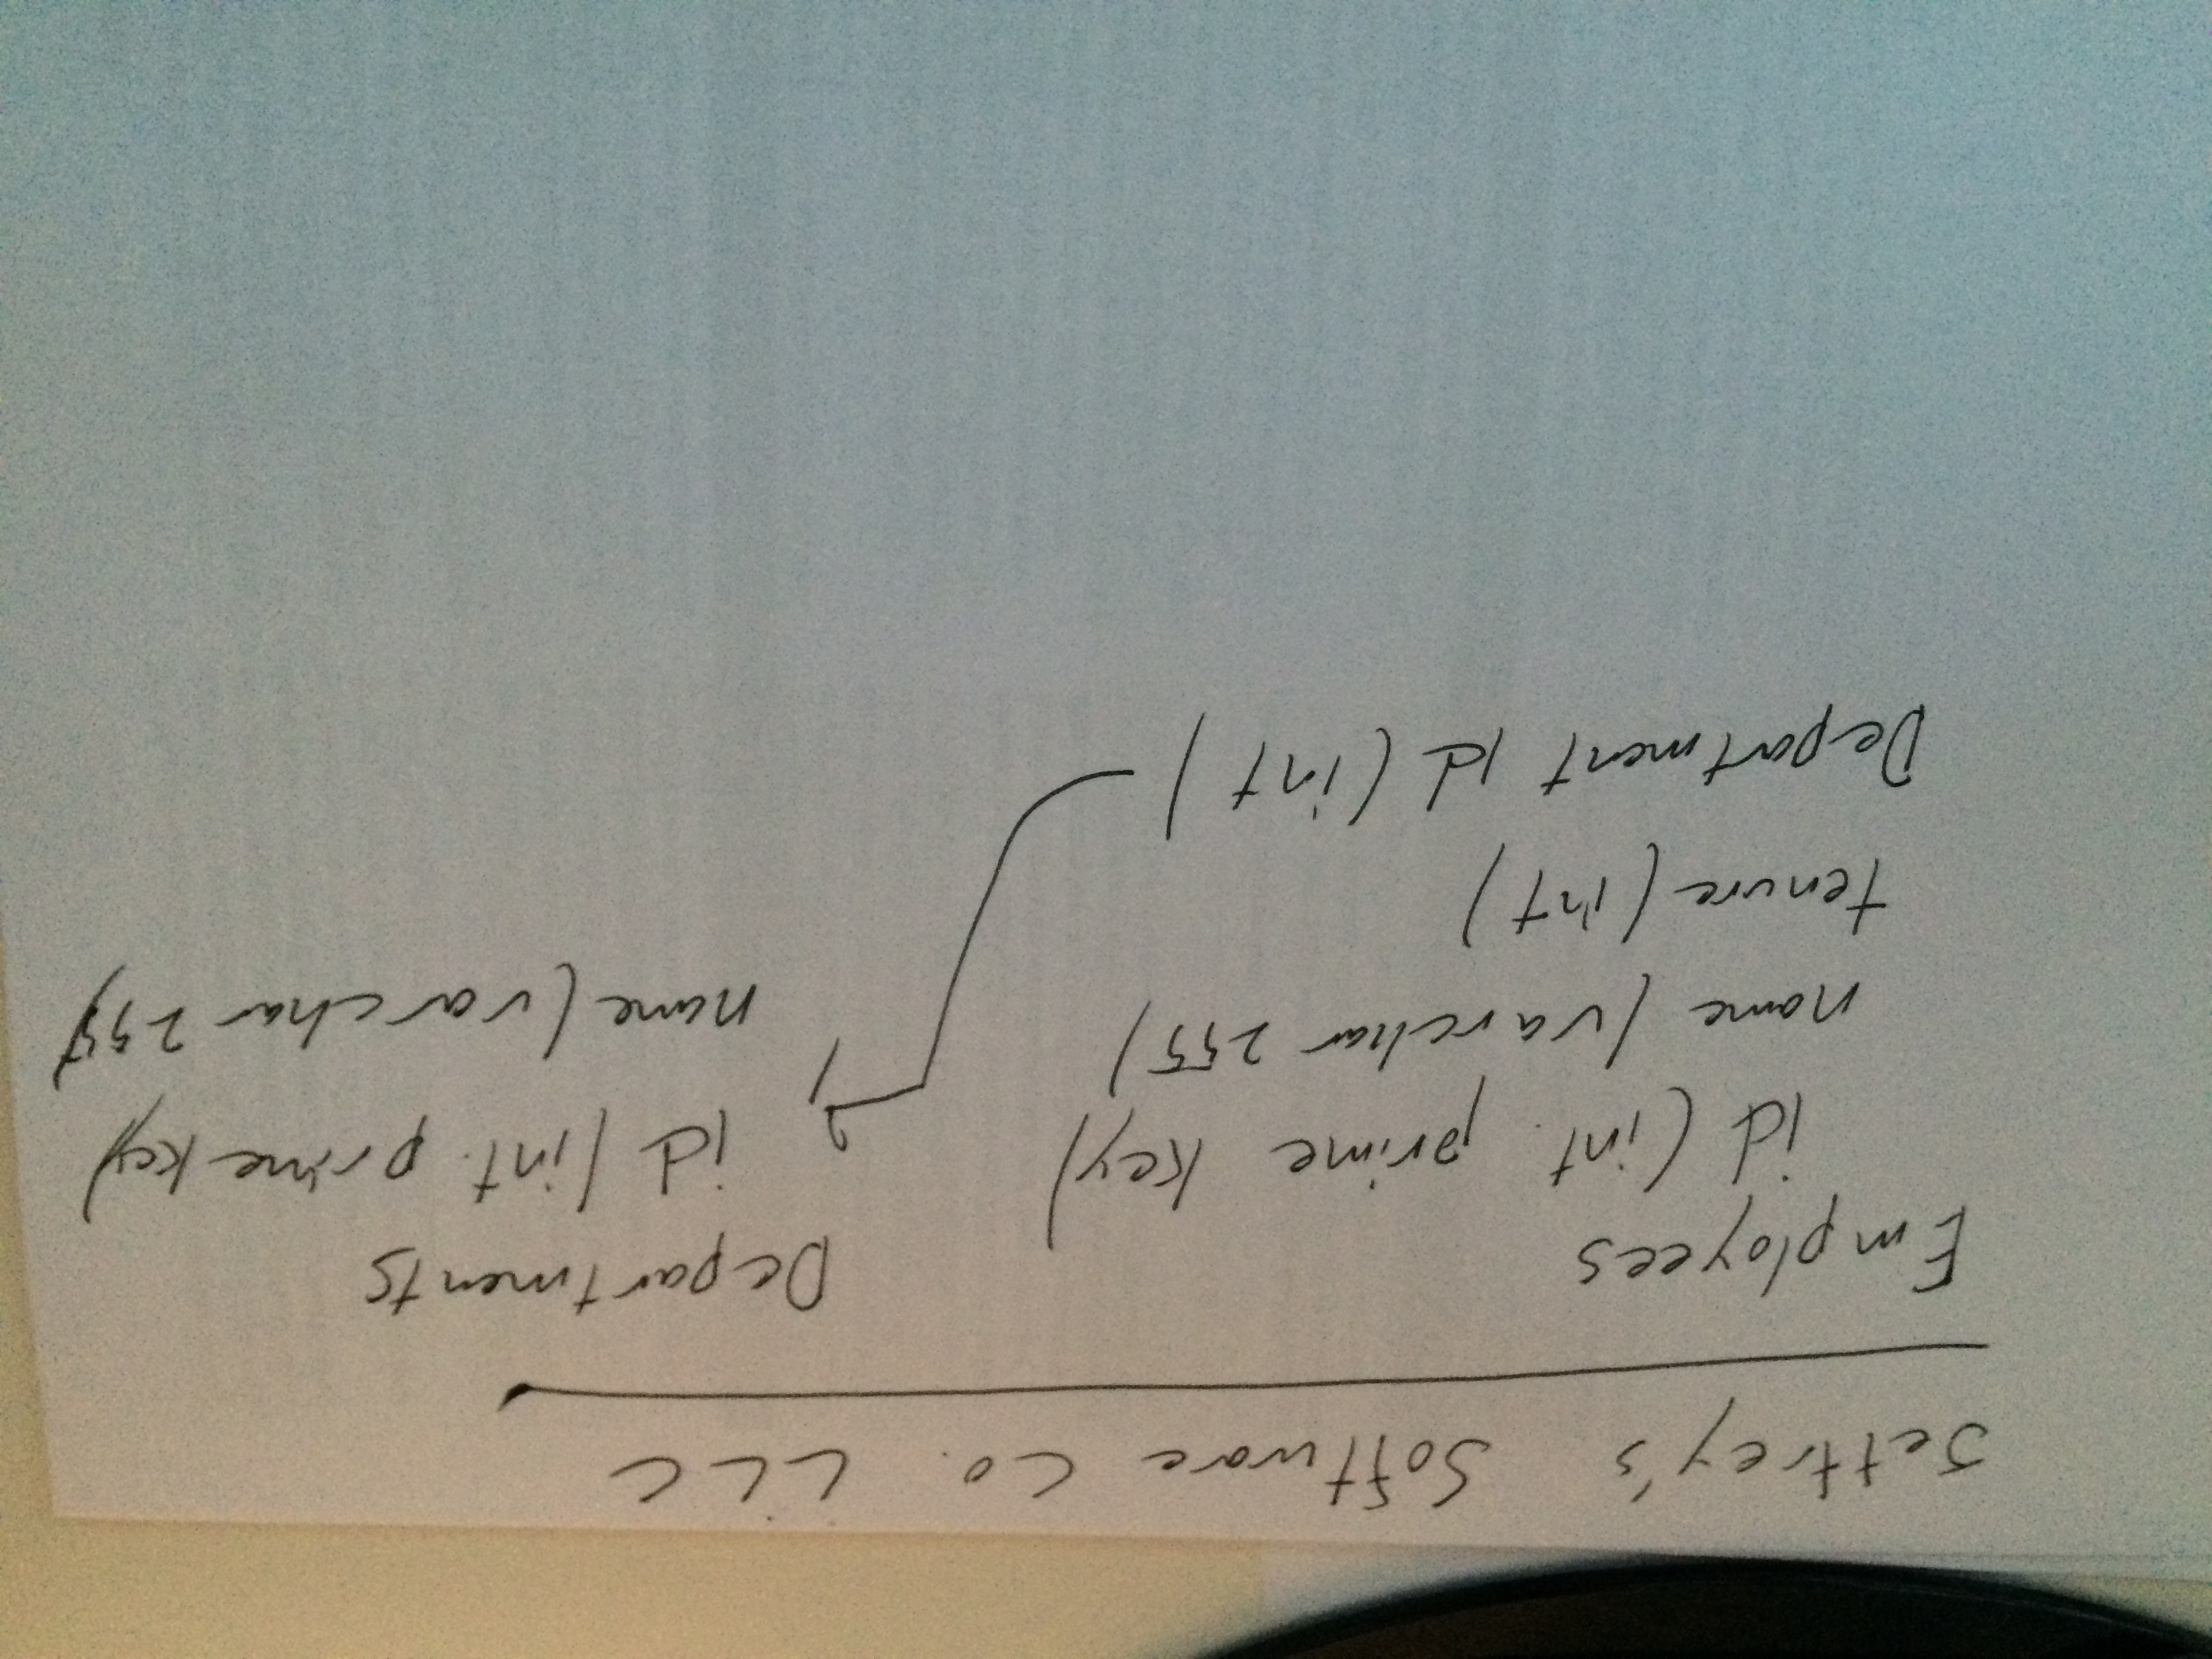 Jeffrey's Software Co. LLC
Employees
id (int. prime key)
name (varchar 255)
tenure (int)
Department id (int)
Departments
id (int. prime key)
name (varchar 255)